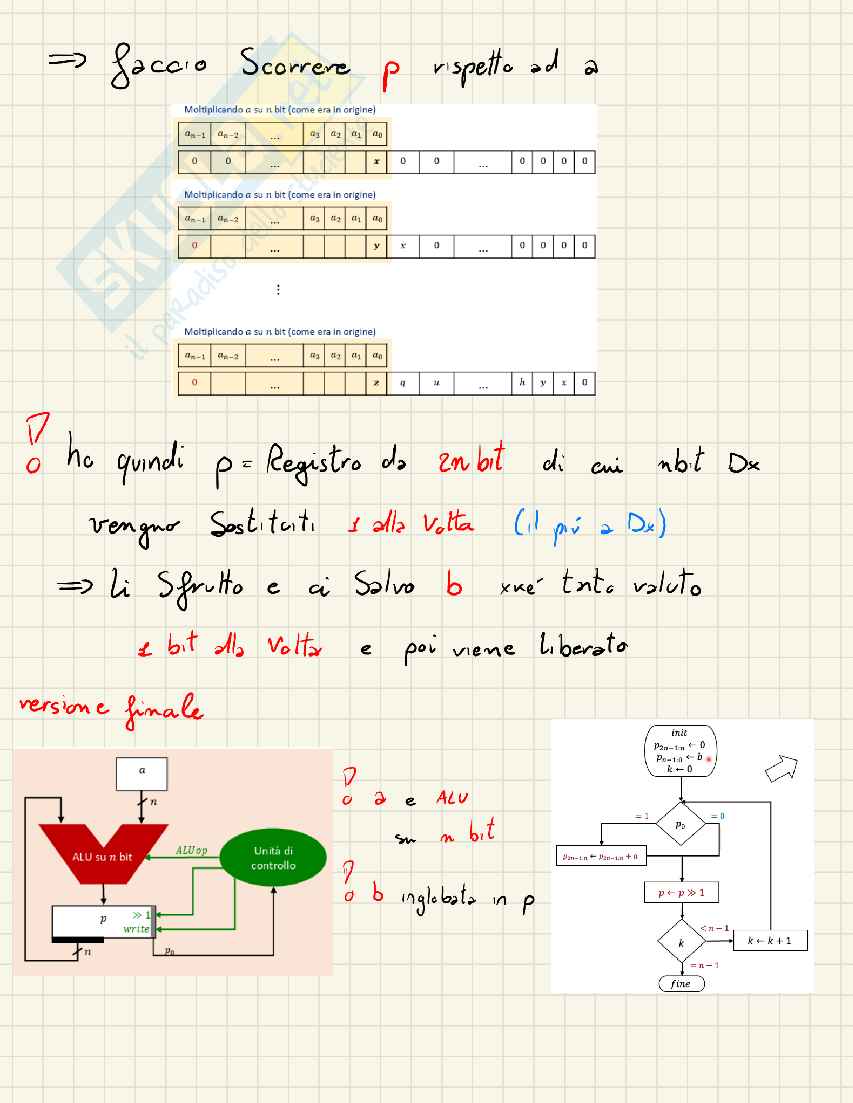 ⇒ faccio Scorrere p rispetto ad a
Moltiplicando a su n bit (come era in origine)
a_{n-1} a_{n-2} ... a_3 a_2 a_1 a_0
0 0 ... x 0 0 ... 0 0 0 0
Moltiplicando a su n bit (come era in origine)
a_{n-1} a_{n-2} ... a_3 a_2 a_1 a_0
0 ... y x 0 ... 0 0 0 0
⋮
Moltiplicando a su n bit (come era in origine)
a_{n-1} a_{n-2} ... a_3 a_2 a_1 a_0
0 ... z q u ... h y x 0
ho quindi p = Registro da 2n bit di cui nbit Dx
vengno Sostituiti 1 alla Volta (il più a Dx)
⇒ li Sfrutto e ci Salvo b xké tanto valuto
1 bit alla Volta e poi viene liberato
versione finale
a
n
ALU su n bit
ALUop
Unità di
controllo
p
≫ 1
write
n
p_0
a e ALU
su n bit
b inglobata in p
init
p_{2n-1:n} ← 0
p_{n-1:0} ← b
k ← 0
= 1
p_0
= 0
p_{2n-1:n} ← p_{2n-1:n} + a
p ← p ≫ 1
< n − 1
k
k ← k + 1
= n − 1
fine
SKUOLA.net
il paradiso dello studente